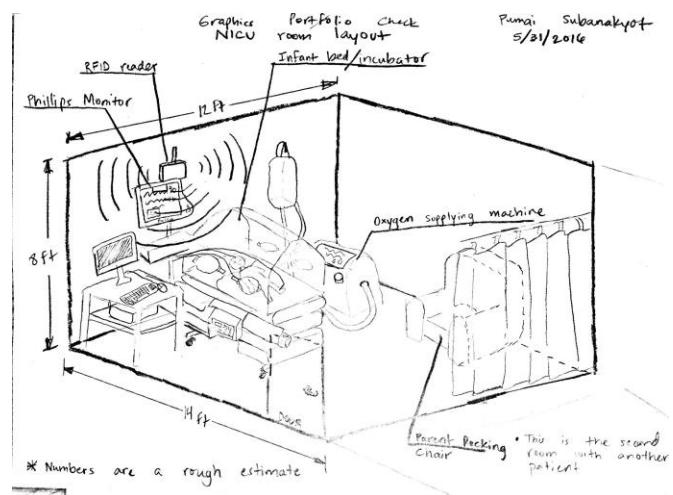 Graphics Portfolio Check
NICU room layout
Pumai Subanakyof
5/31/2016
RFID reader
Infant bed/incubator
Phillips Monitor
12 ft
8 ft
Oxygen supplying machine
14 ft
Door
Parent Rocking
Chair
• This is the second
room with another
patient
* Numbers are a rough estimate